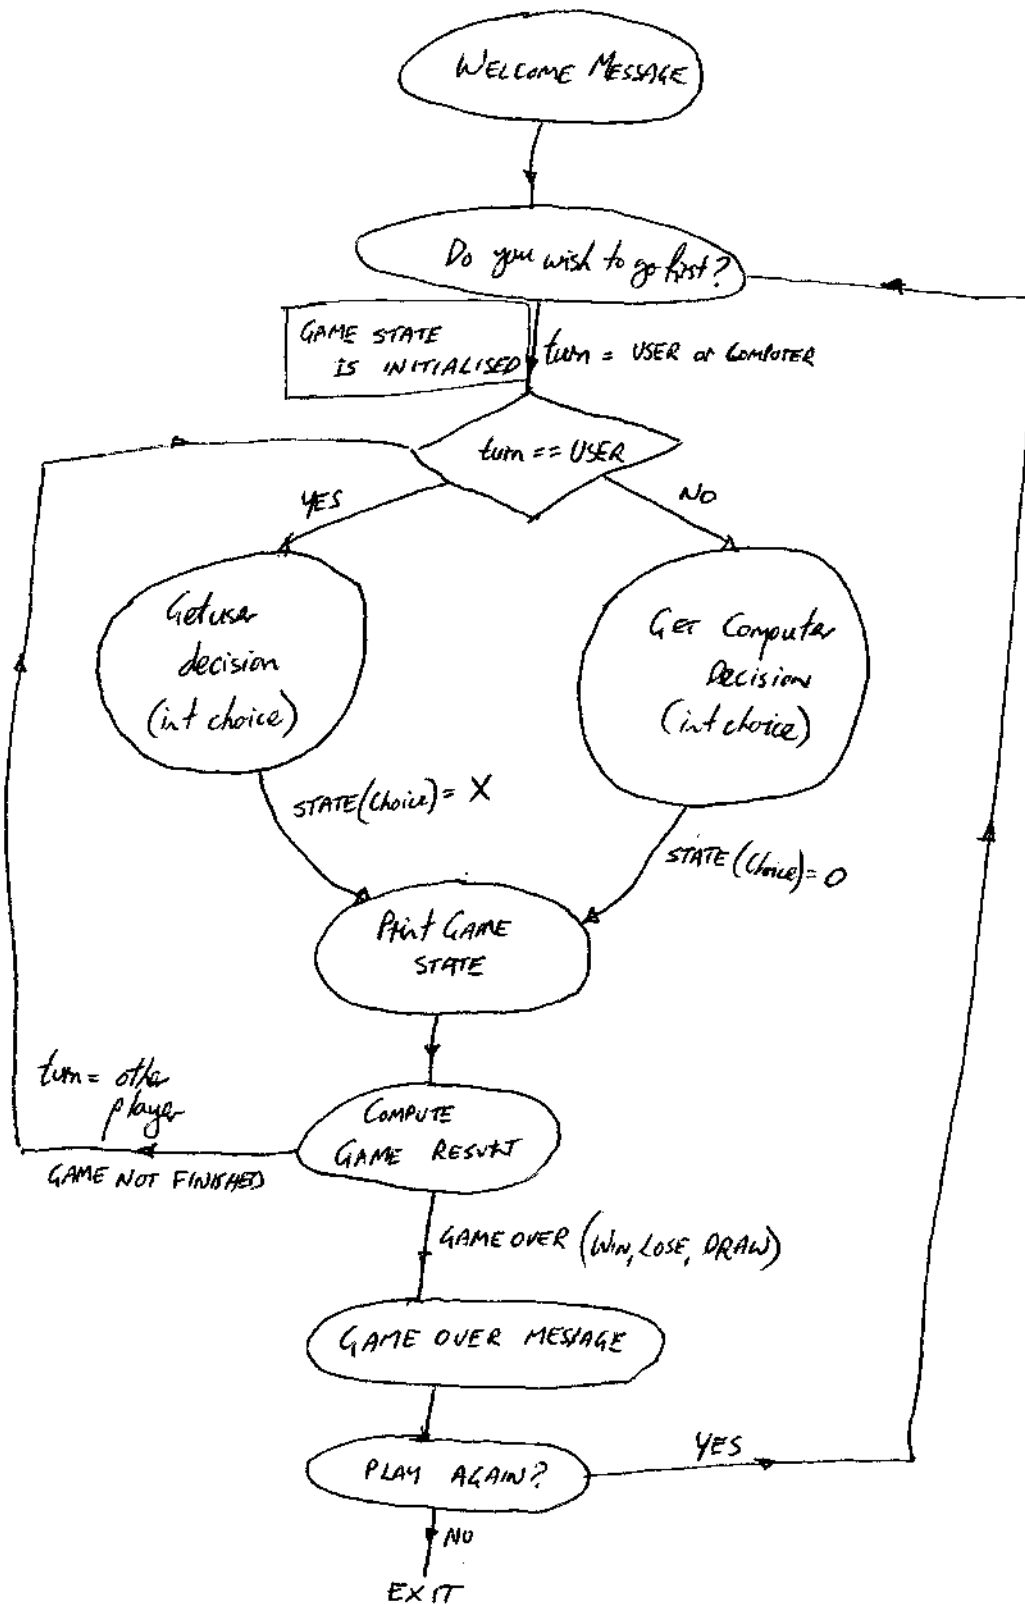 WELCOME MESSAGE
Do you wish to go first?
GAME STATE
IS INITIALISED
turn = USER or COMPUTER
turn == USER
YES
NO
Get user
decision
(int choice)
GET Computer
Decision
(int choice)
STATE (Choice) = X
STATE (Choice) = O
Print GAME
STATE
turn = other
player
COMPUTE
GAME RESULT
GAME NOT FINISHED
GAME OVER (WIN, LOSE, DRAW)
GAME OVER MESSAGE
PLAY AGAIN?
YES
NO
EXIT